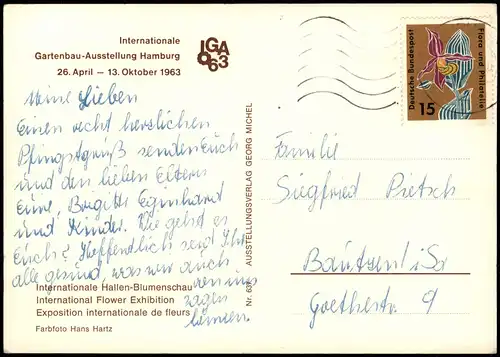 Internationale
Gartenbau-Ausstellung Hamburg
26. April — 13. Oktober 1963
IGA
63
Deutsche Bundespost
Flora und Philatelie
15
Meine Lieben
Einen recht herzlichen
Pfingstgruß senden Euch
und den lieben Eltern
Eure, Brigitte Eginhard
und Kinder. Wie geht es
Euch? Hoffentlich seid Ihr
alle gesund, was wir auch
von uns
sagen
können.
Internationale Hallen-Blumenschau
International Flower Exhibition
Exposition internationale de fleurs
Farbfoto Hans Hartz
Nr. 637 AUSSTELLUNGSVERLAG GEORG MICHEL
Familie
Siegfried Pietsch
Bautzen i/Sa
Goethestr. 9